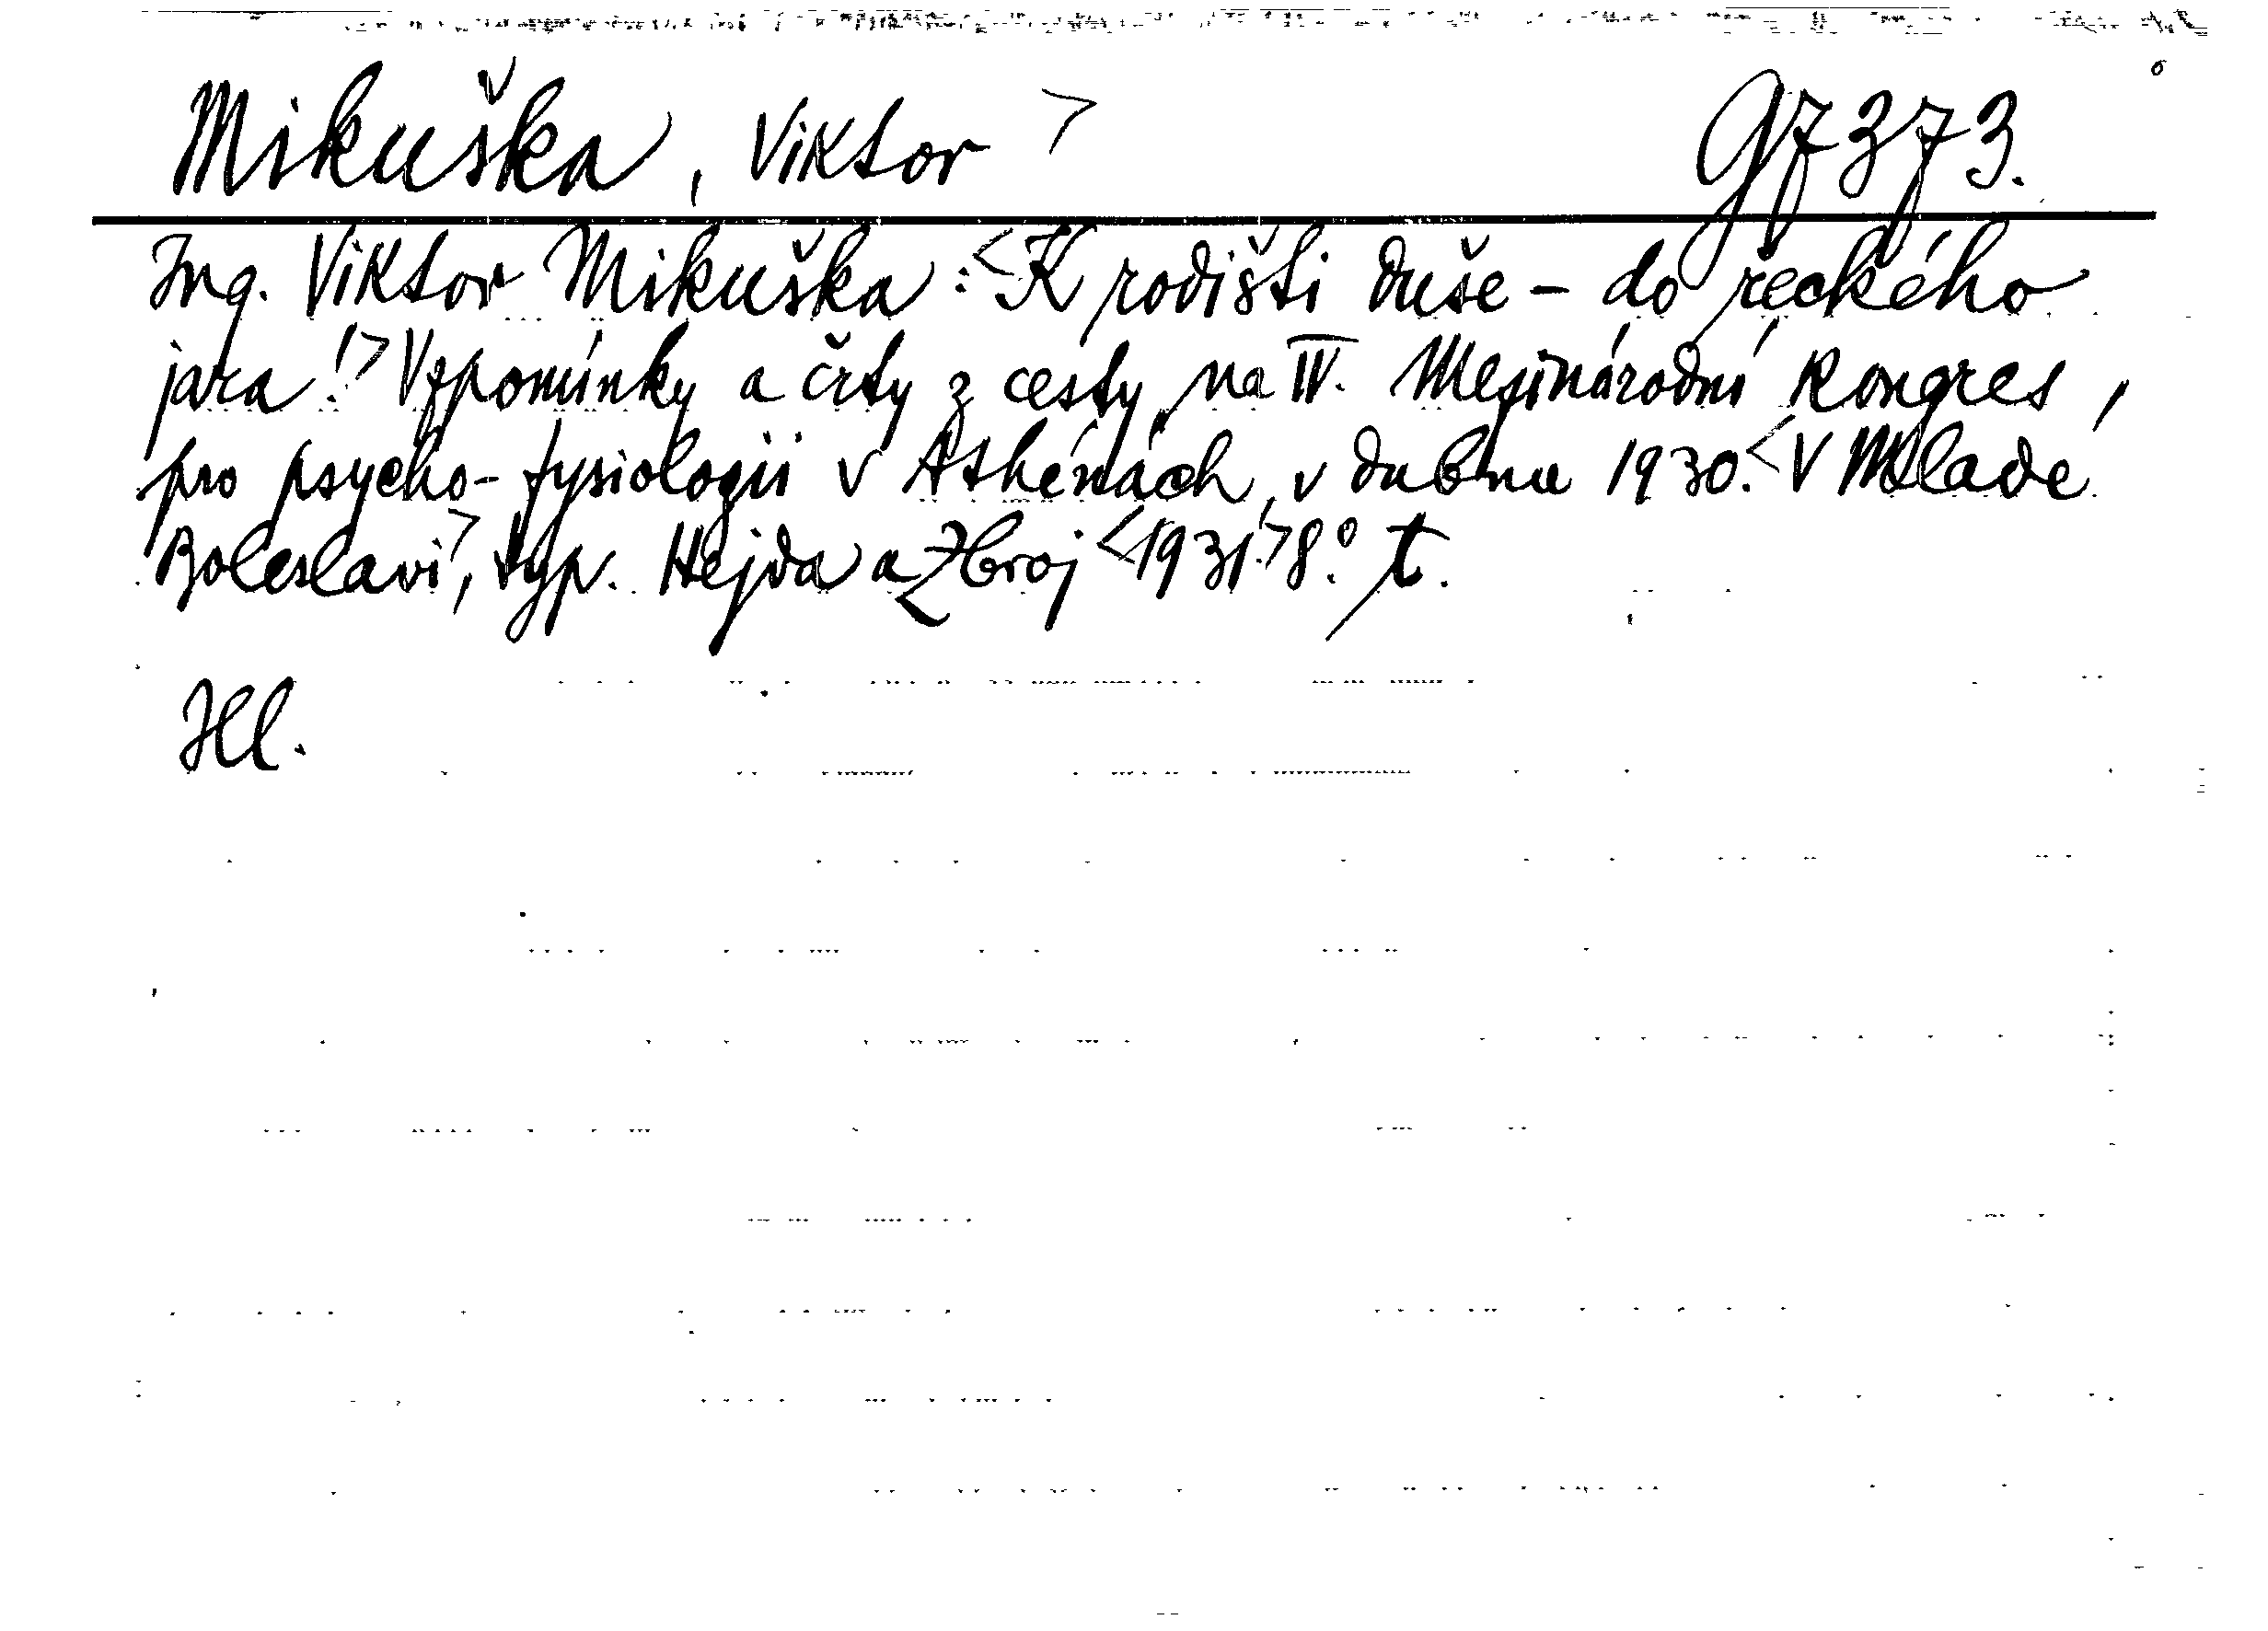 Mikuška, Viktor > 97373.
Ing. Viktor Mikuška: <K rodišti duše - do řeckého
jara!> Vzpomínky a črty z cesty na IV. Mezinárodní kongres
pro psycho-fysiologii v Athénách, v dubnu 1930. <V Mladé
Boleslavi>, typ. Hejda a Zbroj <1931.> 8.° t.
Hl.